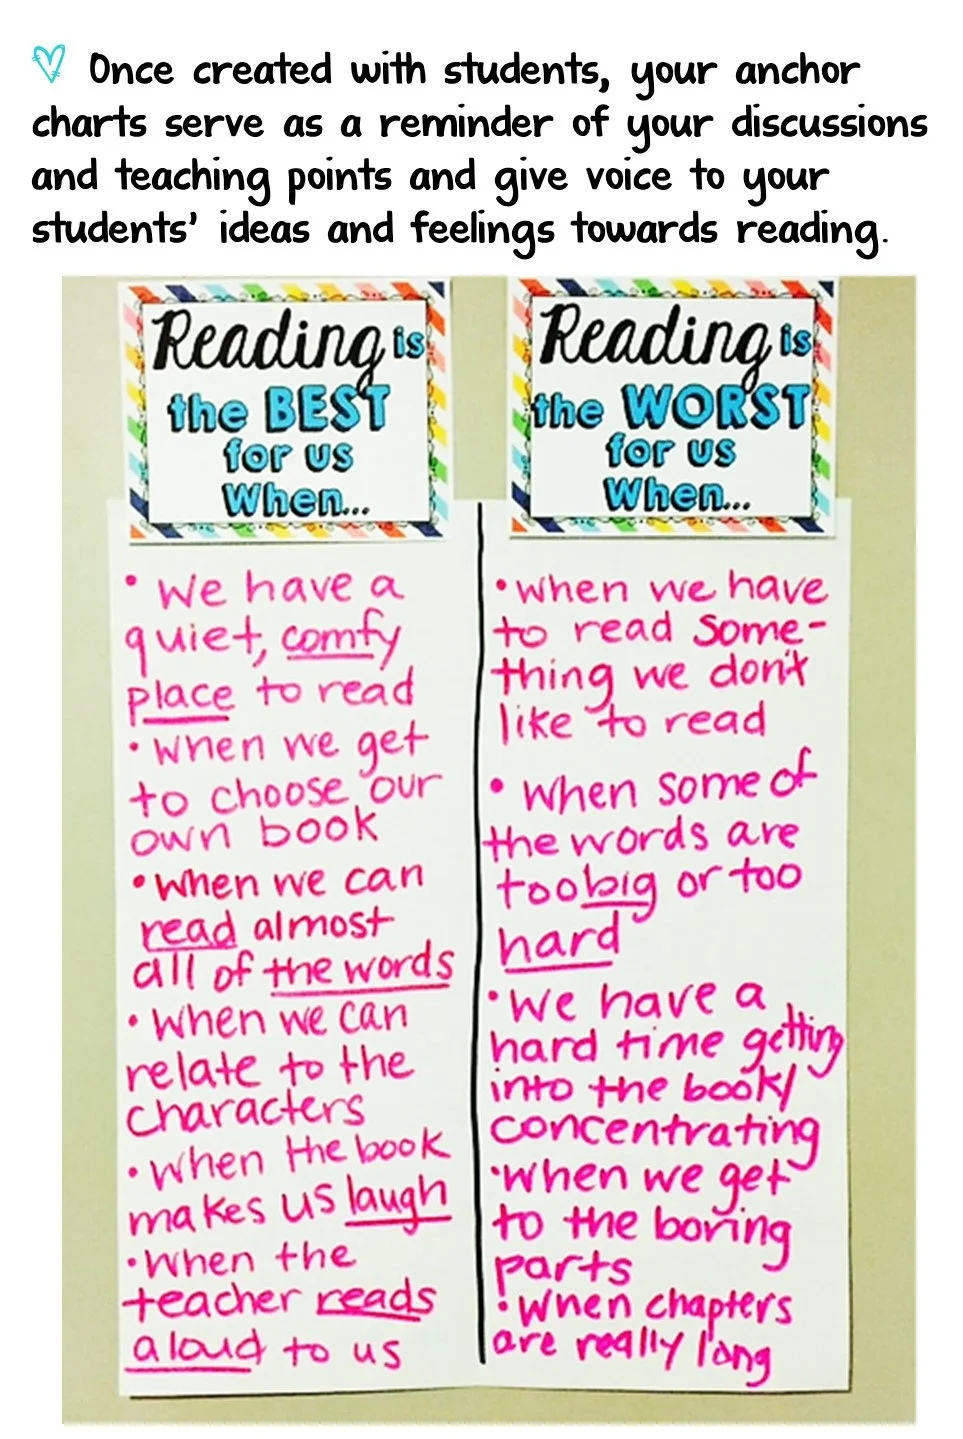 Once created with students, your anchor
charts serve as a reminder of your discussions
and teaching points and give voice to your
students' ideas and feelings towards reading.
Reading is
the BEST
for us
When...
• We have a
quiet, comfy
place to read
• When we get
to choose our
own book
• When we can
read almost
all of the words
• When we can
relate to the
characters
• When the book
makes us laugh
• When the
teacher reads
aloud to us
Reading is
the WORST
for us
When...
• When we have
to read some-
thing we don't
like to read
• When some of
the words are
too big or too
hard
• We have a
hard time getting
into the book/
concentrating
• When we get
to the boring
parts
• When chapters
are really long